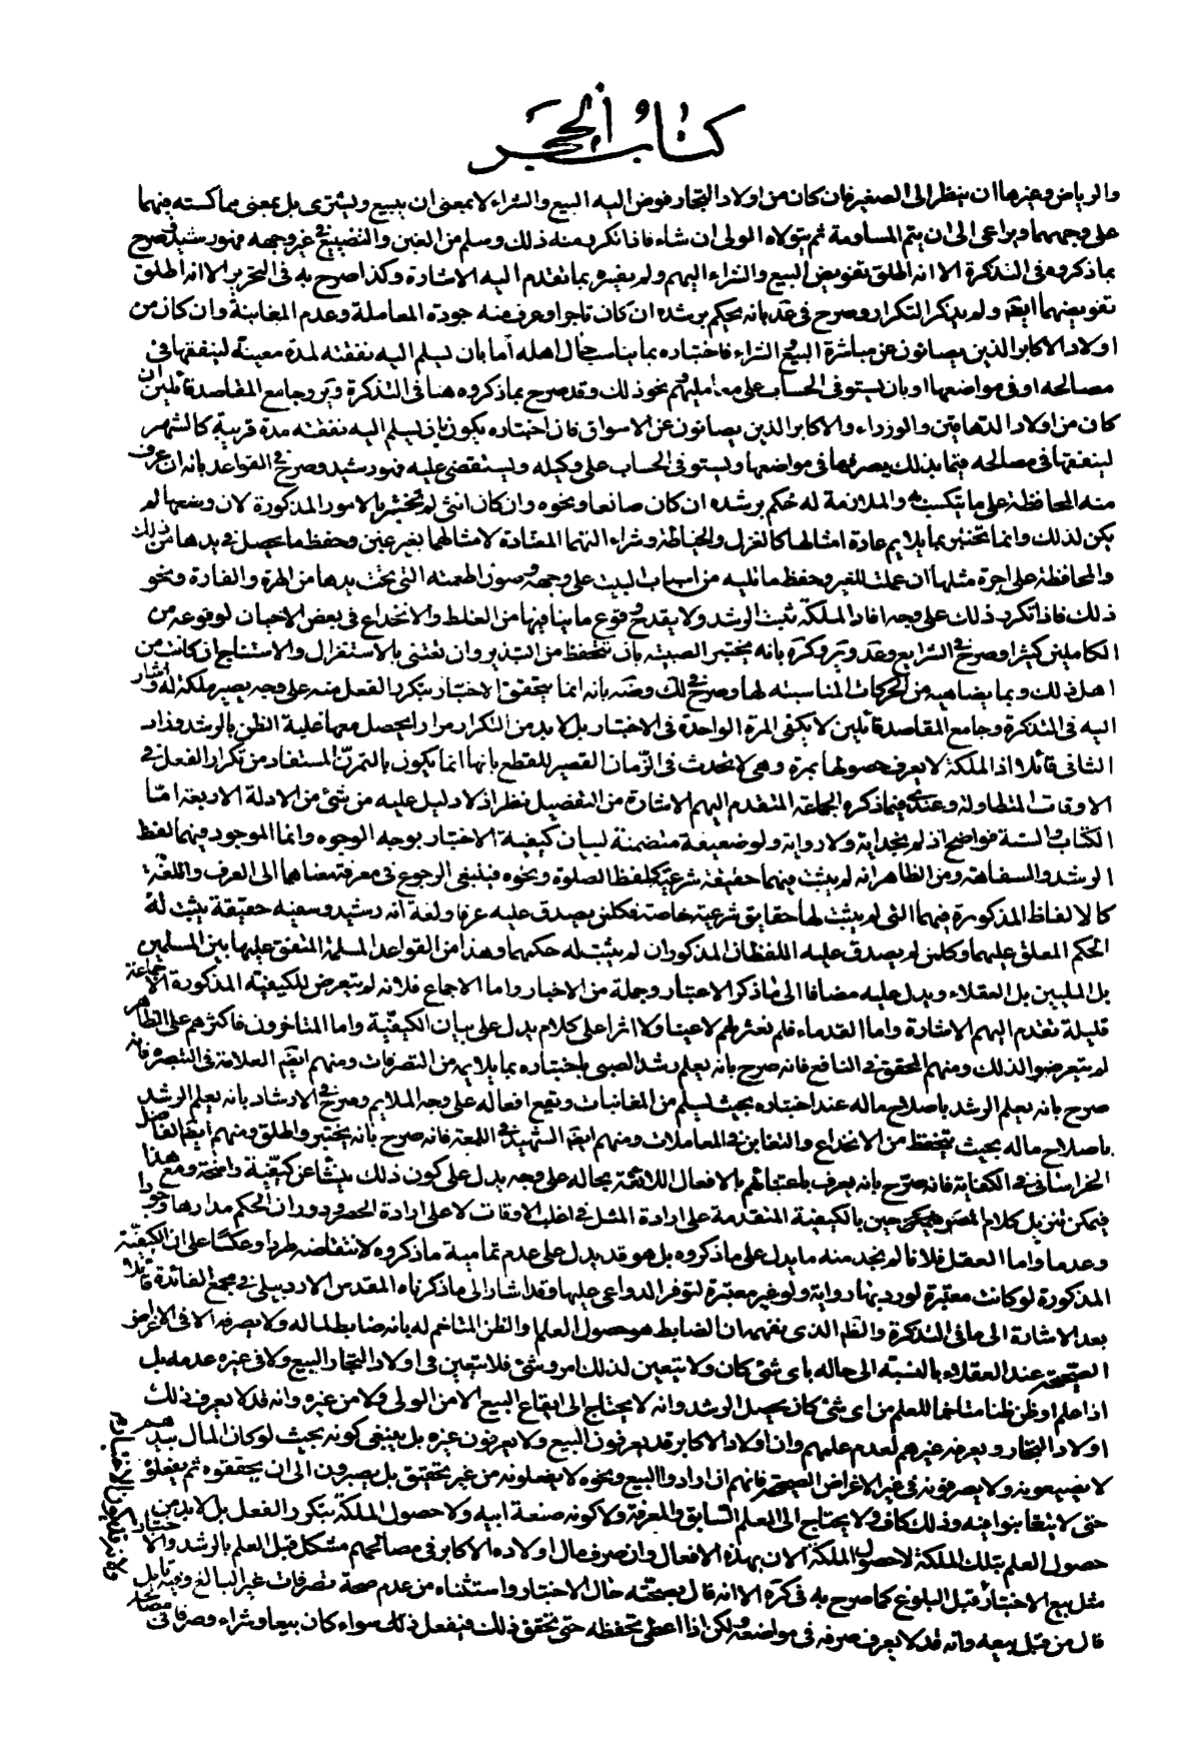 كتاب الحجر
والرياض وغيرها ان ينظر الى الصغير فان كان من اولاد التجار فوض اليه البيع والشراء لا بمعنى ان يبيع ويشترى بل بمعنى مماكسته فيهما
على وجههما ويراعى الى ان يتم المساومة ثم يتولاه الولى ان شاء فاذا تكرر منه ذلك وسلم من الغبن والتضييع فى غير وجهه فهو رشيد وصرح
بما ذكروه فى التذكرة الا انه اطلق تفويض البيع والشراء اليهم ولم يقيده بما تقدم اليه الاشارة وكذا صرح به فى التحرير الا انه اطلق
تفويضهما ايضا ولم يذكر التكرار وصرح فى عد بانه يحكم برشده ان كان تاجرا وعرف منه جودة المعاملة وعدم المغابنة وان كان من
اولاد الاكابر الذين يصانون عن مباشرة البيع و الشراء فاختباره بما يناسب حال اهله اما بان يسلم اليه نفقته لمدة معينة لينفقها فى
مصالحه او فى مواضعها او بان يستوفى الحساب على معامليهم نحو ذلك وقد صرح بما ذكروه هنا فى التذكرة وير وجامع المقاصد قائلين ان
كان من اولاد الدهاقين والوزراء والاكابر الذين يصانون عن الاسواق فان اختباره يكون بان يسلم اليه نفقته مدة قريبة كالشهر
لينفقها فى مصالحه فيما بذلك يصرفها فى مواضعها ويستوفى الحساب على وكيله ويستقصى عليه فهو رشيد وصرح فى القواعد بانه ان عرف
منه المحافظة على ما يتكسب به والملازمة له حكم برشده ان كان صانعا ونحوه وان كان انثى لم تختبر بالامور المذكورة لان وضعها لم
يكن لذلك وانما تختبر بما يلايم عادة امثالها كالغزل والخياطة وشراء التهما المعتادة لامثالهما بغير غبن وحفظ ما يحصل فى يدها من ذلك
والمحافظة على اجرة مثلها ان عملت للغير وحفظ ما تليه من اسباب البيت على وجهه وصون اطعمته التى تحت يدها من الهرة والفارة ونحو
ذلك فاذا تكرر ذلك على وجه افاد الملكة ثبت الرشد ولا يقدح وقوع ما ينافيها من الغلط والانخداع فى بعض الاحيان لوقوعه من
الكاملين كثيرا وصرح فى الشرايع وعد وير وكره بانه يختبر الصبيه بان تتحفظ من التبذير وان تعتنى بالاستغزال والاستنتاج ان كانت من
اهل ذلك وبما يضاهيه من الحركات المناسبته لها وصرح فى لك وضه بانه انما يتحقق الاختبار بتكرر الفعل منه على وجه يصير ملكة له واشار
اليه فى التذكرة وجامع المقاصد قائلين لا يكفى المرة الواحدة فى الاختبار بل لا بد من التكرار مرارا يحصل معها غلبة الظن بالرشد وزاد
الثانى قائلا اذ الملكة لا يعرف حصولها بمرة وهى لا تحدث فى الزمان القصير للقطع بانها انما يكون بالتمرن المستفاد من تكرار الفعل فى
الاوقات المتطاولة وعندى فيما ذكره الجماعة المتقدم اليهم الاشارة من التفصيل نظر اذ لا دليل عليه من شئ من الادلة الاربعة اما
الكتاب والسنة فواضح اذ لم نجد اية ولا رواية ولو ضعيفة متضمنة لبيان كيفية الاختبار بوجه الوجوه وانما الموجود فيهما لفظ
الرشد والسفاهة ومن الظاهر انه لم يثبت فيهما حقيقة شرعية كلفظ الصلوة ونحوه فينبغى الرجوع فى معرفة معناهما الى العرف واللغة
كالالفاظ المذكورة فيهما التى لم يثبت لها حقايق شرعية خاصة فكل من يصدق عليه عرفا ولغة انه رشيد وسفيه حقيقة يثبت له
الحكم المعلق عليهما وكل من لم يصدق عليه اللفظان المذكوران لم يثبت له حكمهما وهذا من القواعد المسلمة المتفق عليها بين المسلمين
بل المليين بل العقلاء ويدل عليه مضافا الى ما ذكر الاعتبار وجملة من الاخبار واما الاجماع فلانه لم يتعرض للكيفية المذكورة الا جماعة
قليلة تقدم اليهم الاشارة واما القدماء فلم نعثر لهم لا عينا ولا اثرا على كلام يدل على بيان الكيفية واما المتاخرون فاكثرهم على الظاهر
لم يتعرضوا لذلك ومنهم المحقق فى النافع فانه صرح بانه يعلم رشد الصبى باختباره بما يلايمه من التصرفات ومنهم ايضا العلامة فى التبصرة فانه
صرح بانه يعلم الرشد باصلاح ماله عند اختباره بحيث يسلم من المغابنات ويقع افعاله على وجه الملايم وصرح فى الارشاد بانه يعلم الرشد
باصلاح ماله بحيث يتحفظ من الانخداع والتغابن فى المعاملات ومنهم ايضا الشهيد فى اللمعة فانه صرح بانه يختبر واطلق ومنهم ايضا الفاضل
الخراسانى فى الكفاية فانه صرح بانه يعرف باعتنائهم بالافعال اللائقة بحاله على وجه يدل على كون ذلك ينشأ عن كيفية راسخة ومع هذا
فيمكن تنزيل كلام المصرحين بالكيفية المتقدمة على ارادة المثل فى اغلب الاوقات لا على ارادة الحصر ودوران الحكم مدارها وجودا
وعدما واما العقل فلانا لم نجد منه ما يدل على ما ذكروه بل هو قد يدل على عدم تمامية ما ذكروه لانتقاضه طردا وعكسا على ان الكيفية
المذكورة لو كانت معتبرة لورد بها رواية ولو غير معتبرة لتوفر الدواعى عليها وقد اشار الى ما ذكرناه المقدس الاردبيلى فى مجمع الفائدة قائلا
بعد الاشارة الى ما فى التذكرة والظم الذى نفهمه ان الضابط هو حصول العلم او الظن المتاخم له بانه ضابط لماله ولا يصرفه الا فى الاغراض
الصحيحة عند العقلاء بالنسبة الى حاله باى شئ كان ولا يتعين لذلك امر وشئ فلا يتعين فى اولاد التجار البيع ولا فى غيره عدمه بل
اذا علم او ظن ظنا متاخما للعلم من اى شئ كان يحصل الرشد وانه لا يحتاج الى ايقاع البيع الا من الولى ولا من غيره وانه قد لا يعرف ذلك
اولاد التجار ويعرفه غيرهم لعدم علمهم وان اولاد الاكابر قد يعرفون البيع ولا يعرفون غيره بل ينبغى كونه بحيث لو كان المال بيدهم
لا يضيعونه ولا يصرفونه فى غير الاغراض الصحيحة فانهم ان ارادوا البيع ونحوه لا يفعلونه من غير تحقيق بل يصبرون الى ان يحققوه ثم يفعلوه
حتى لا يتغابنوا فيه وذلك كاف ولا يحتاج الى العلم السابق والمعرفة ولا كونه صنعة ابيه ولا حصول الملكة بتكرر الفعل بل لا بد من
حصول العلم بتلك الملكة لا حصول الملكة الان بهذه الافعال وان صرف مال اولاده الاكابر فى مصالحهم مشكل قبل العلم بالرشد والاختبار
مثل بيع الاختبار قبل البلوغ كما صرح به فى كره الا انه قال بصحته حال الاختبار واستثناه من عدم صحة تصرفات غير البالغ وفيه تامل
قال من قبل بيعه وانه قد لا يعرف صرفه فى مواضعه ولكن اذا اعطى تحفظه حتى تحقق ذلك فيفعل ذلك سواء كان بيعا وشراء وصرفا فى مصالحه